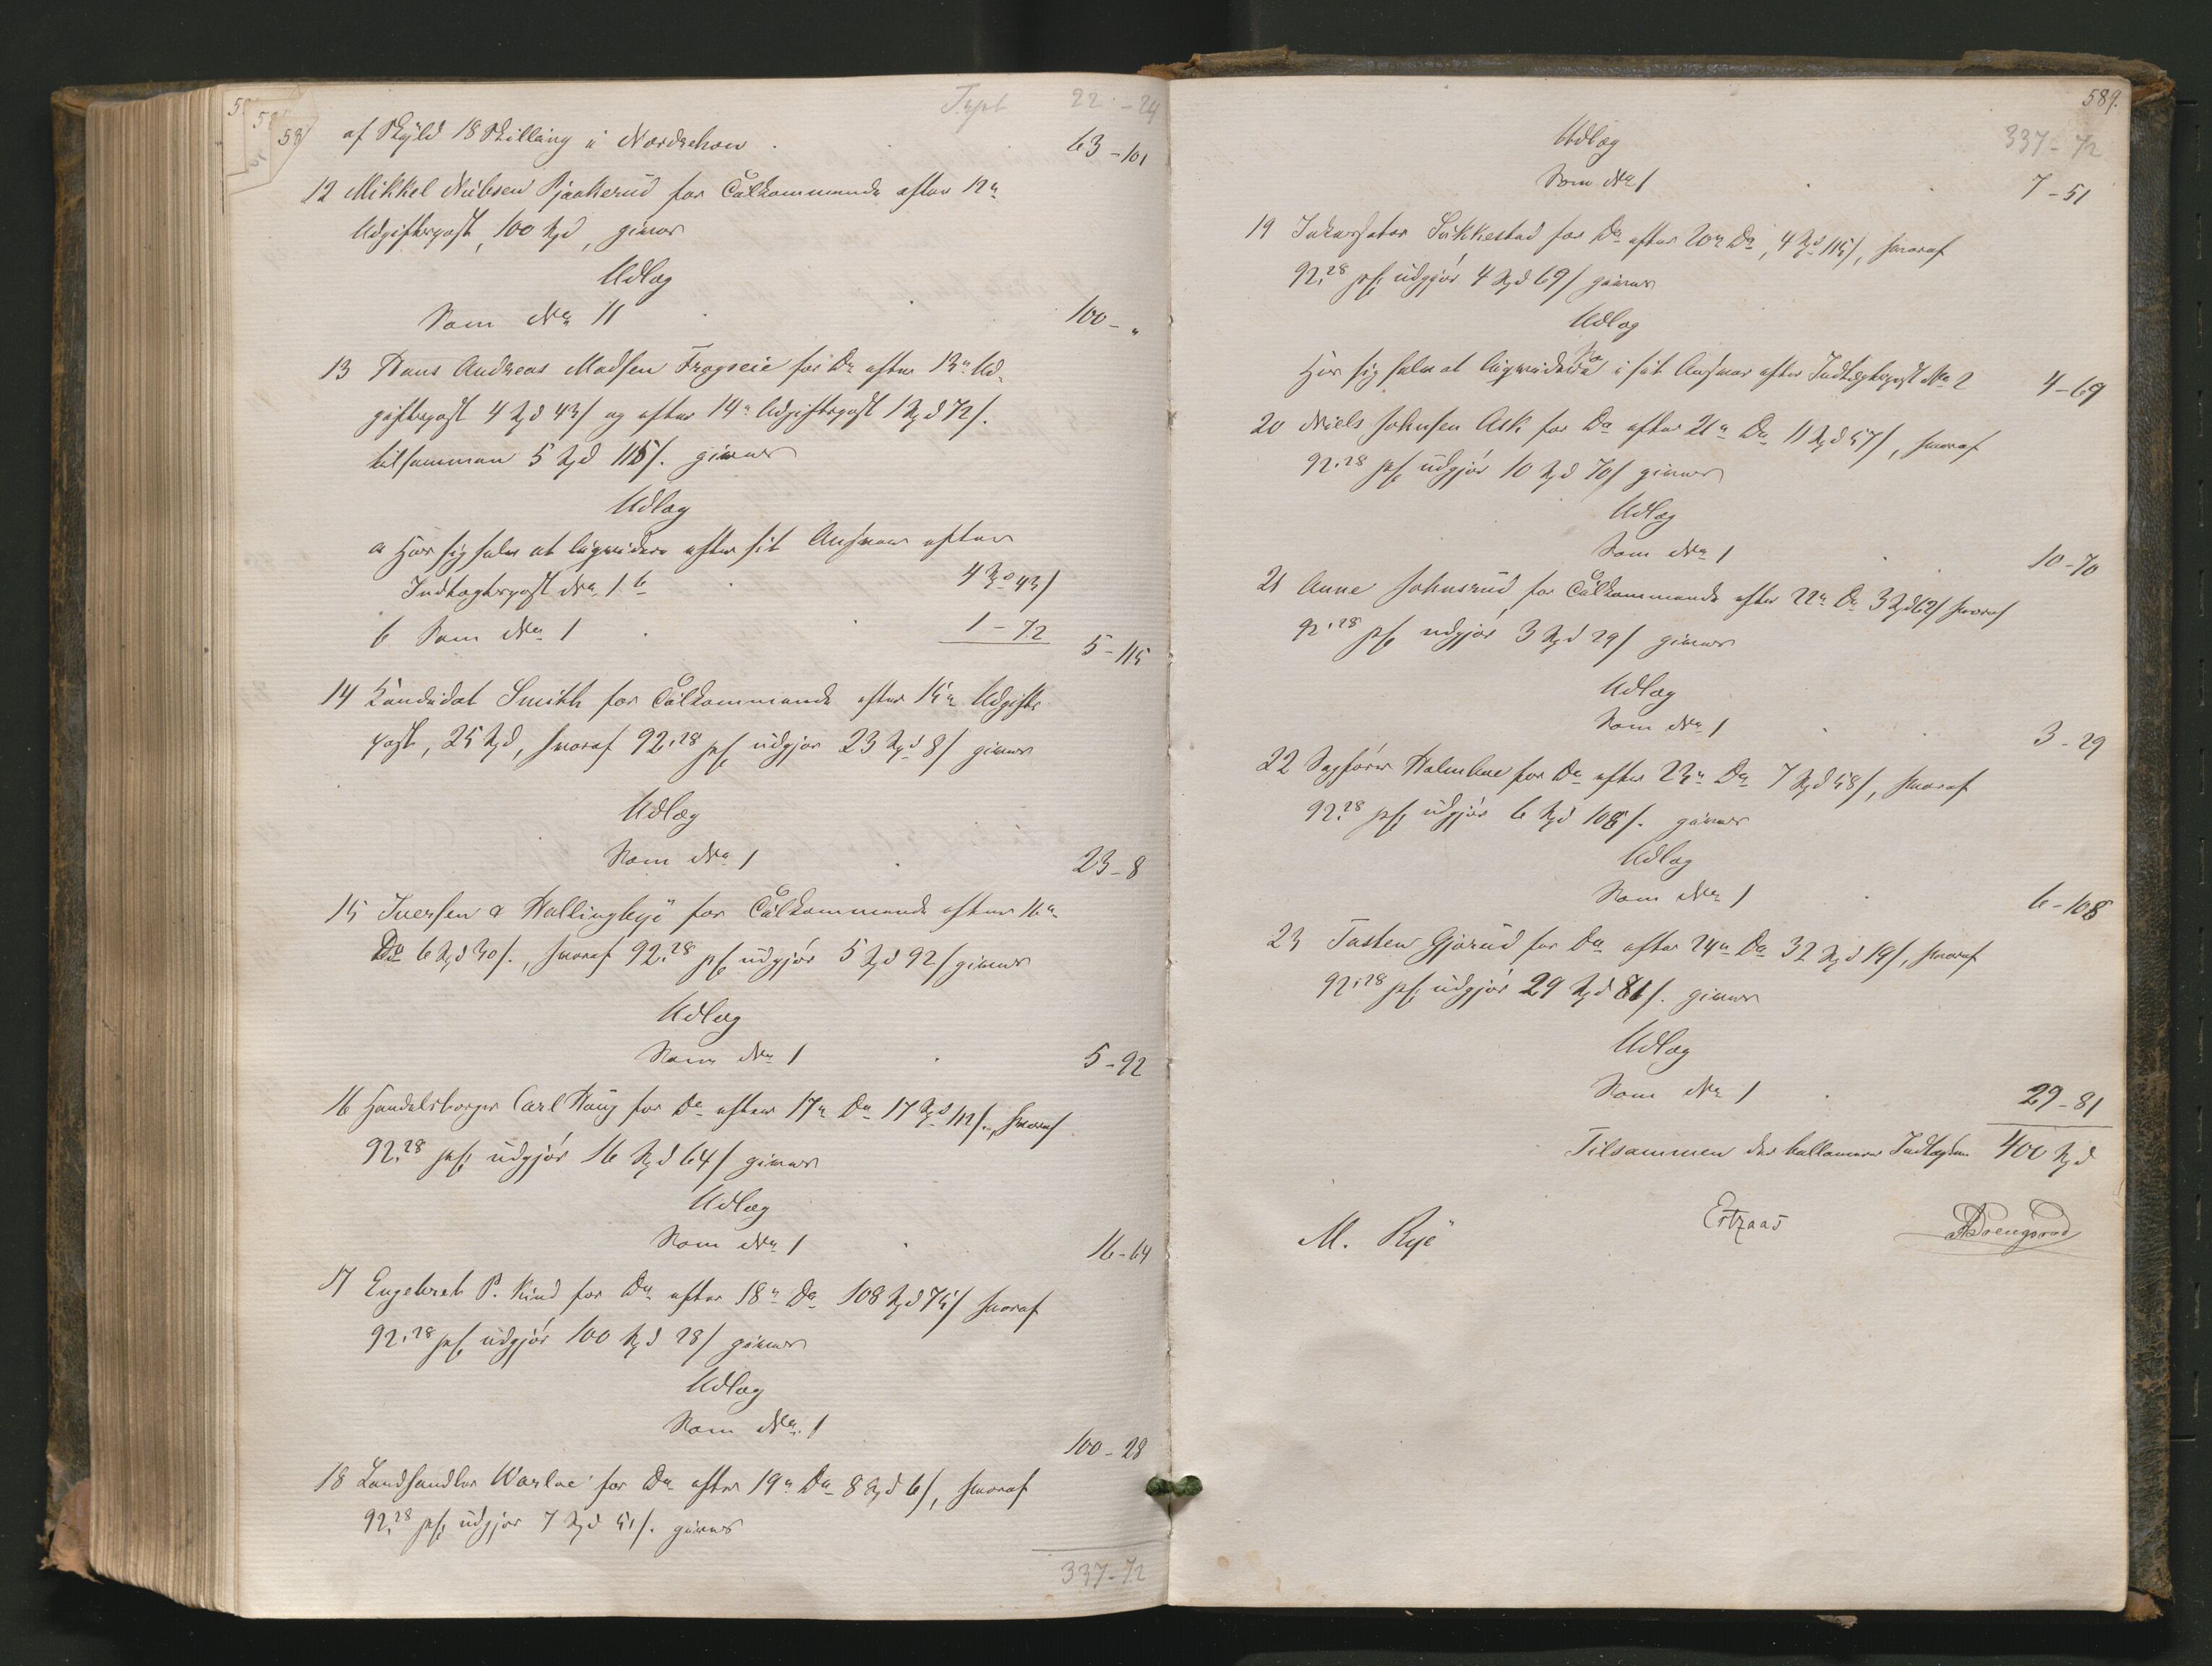 Tspt 22 - 24
af Skyld 18 Skilling i Norderhow . 63 - 101
12 Mikkel Nielsen Pjaakerud for Tilkommende efter 12te
Udgiftspost, 100 Spd, gives
Udlæg
Som No 11 . 100 - "
13 Hans Andreas Madsen Frogseie for Do efter 13de Ud-
giftspost 4 Spd 43 s og efter 14de Udgiftspost 1 Spd 72 s.
tilsammen 5 Spd 115 s. gives
Udlæg
a Hos sig selv at liqvidere efter sit Ansvar efter
Indtægtspost No 1 b . 4 Spd 43 s
b Som No 1 . 1 - 72 5 - 115
14 Kandidat Smith for Tilkommende efter 15de Udgifts
post, 25 Spd, hvoraf 92,28 pCt udgjør 23 Spd 8 s gives
Udlæg
Som No 1 . 23 - 8
15 Iversen & Hallingbye for Tilkommende efter 16de
Do 6 Spd 30 s., hvoraf 92,28 pCt udgjør 5 Spd 92 s gives
Udlæg
Som No 1 . 5 - 92
16 Handelsborger Carl Haug for Do efter 17de Do 17 Spd 112 s., hvoraf
92,28 pCt udgjør 16 Spd 64 s gives
Udlæg
Som No 1 . 16 - 64
17 Engebret P. Rud for Do efter 18de Do 108 Spd 75 s hvoraf
92,28 pCt udgjør 100 Spd 28 s gives
Udlæg
Som No 1 100 - 28
18 Landhandler Warloe for Do efter 19de Do 8 Spd 6 s, hvoraf
92,28 pCt udgjør 7 Spd 51 s. gives
337 - 72
589.
337 - 72
Udlæg
Som No 1 . 7 - 51
19 Inkassator Sukkestad for Do efter 20de Do, 4 Spd 115 s, hvoraf
92,28 pCt udgjør 4 Spd 69 s gives
Udlæg
Hos sig selv at liqvidere i sit Ansvar efter Indtægtspost No 2 4 - 69
20 Niels Johnsen Ask for Do efter 21de Do 11 Spd 57 s, hvoraf
92,28 pCt udgjør 10 Spd 70 s gives
Udlæg
Som No 1 . 10 - 70
21 Anne Johnsrud for Tilkommende efter 22de Do 3 Spd 62 s hvoraf
92,28 pCt udgjør 3 Spd 29 s gives
Udlæg
Som No 1 . 3 - 29
22 Sagfører Holmboe for Do efter 23de Do 7 Spd 58 s, hvoraf
92,28 pCt udgjør 6 Spd 108 s. gives
Udlæg
Som No 1 . 6 - 108
23 Torsten Gjørud for Do efter 24de Do 32 Spd 19 s, hvoraf
92,28 pCt udgjør 29 Spd 81 s. gives
Udlæg
Som No 1 . 29 - 81
Tilsammen der ballancerer Indtægten 400 Spd
M. Rye Estraas